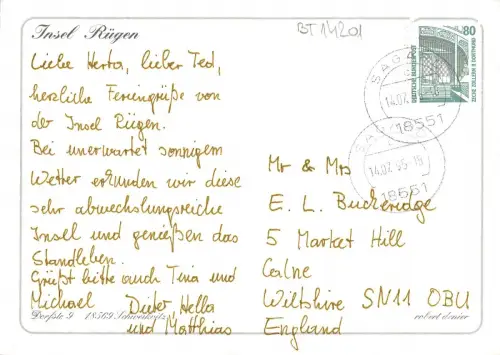 Insel Rügen
BT 14201
Liebe Herta, lieber Ted,
herzliche Feriengrüße von
der Insel Rügen.
Bei unerwartet sonnigem
Wetter erkunden wir diese
sehr abwechslungsreiche
Insel und genießen das
Standleben.
Grüßt bitte auch Tina und
Michael Dieter, Hella
und Matthias
Dorfstr. 9 18569
80
DEUTSCHE BUNDESPOST
ZECHE ZOLLERN II DORTMUND
SAGA
14.07.
18551
14.07.95-15
18551
Mr & Mrs
E. L. Buckeridge
5 Market Hill
Calne
Wiltshire SN11 0BU
England
robert denier